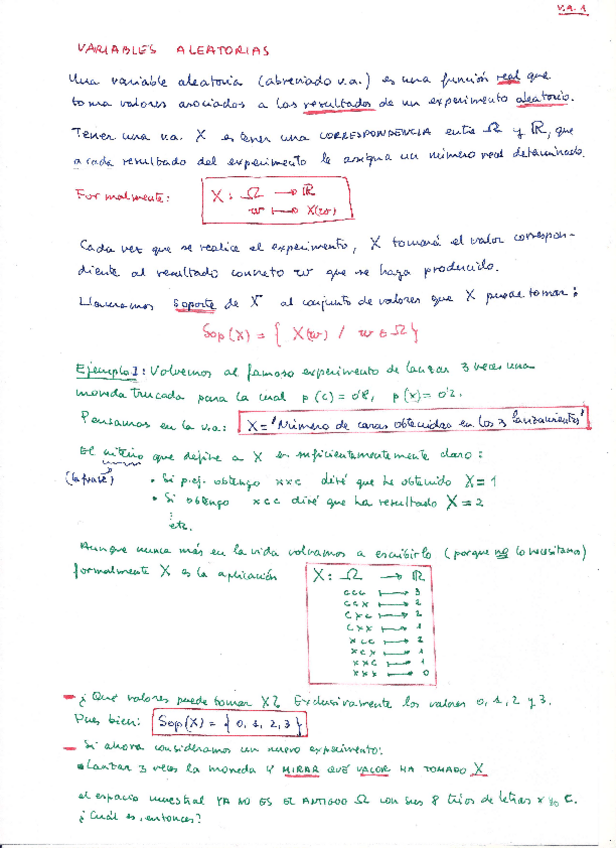 v.a. 1
VARIABLES ALEATORIAS
Una variable aleatoria (abreviado v.a.) es una función real que
toma valores asociados a los resultados de un experimento aleatorio.
Tener una v.a. X es tener una CORRESPONDENCIA entre Ω y ℝ, que
a cada resultado del experimento le asigna un número real determinado.
Formalmente: X: Ω → ℝ
w ↦ X(w)
Cada vez que se realice el experimento, X tomará el valor correspon-
diente al resultado concreto w que se haya producido.
Llamaremos soporte de X al conjunto de valores que X puede tomar:
Sop(X) = { X(w) / w ∈ Ω }
Ejemplo 1: Volvemos al famoso experimento de lanzar 3 veces una
moneda trucada para la cual p(c) = 0'8, p(x) = 0'2.
Pensamos en la v.a: X = "Número de caras obtenidas en los 3 lanzamientos"
El criterio que define a X es suficientemente claro:
(la frase)
• Si p.ej. obtengo xxc diré que he obtenido X = 1
• Si obtengo xcc diré que ha resultado X = 2
⋮
etc.
Aunque nunca más en la vida volvamos a escribirlo (porque no lo necesitamos)
formalmente X es la aplicación X: Ω → ℝ
ccc ↦ 3
ccx ↦ 2
cxc ↦ 2
cxx ↦ 1
xcc ↦ 2
xcx ↦ 1
xxc ↦ 1
xxx ↦ 0
– ¿Qué valores puede tomar X? Exclusivamente los valores 0, 1, 2 y 3.
Pues bien: Sop(X) = { 0, 1, 2, 3 }
– Si ahora consideramos un nuevo experimento:
• Lanzar 3 veces la moneda Y MIRAR QUÉ VALOR HA TOMADO X
el espacio muestral YA NO ES EL ANTIGUO Ω con sus 8 tríos de letras x y/o c.
¿Cuál es, entonces?